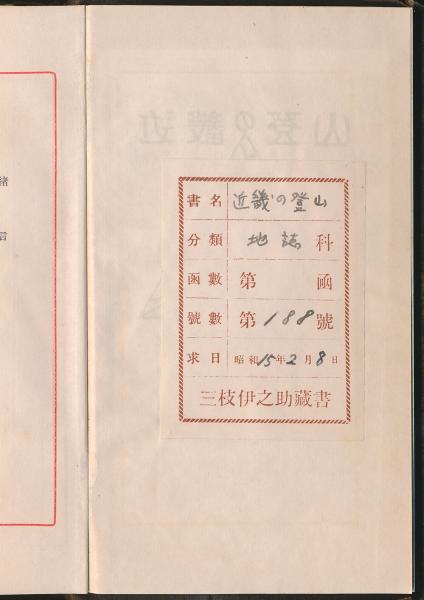 書名 近畿の登山
分類 地誌科
函數 第 函
號數 第188號
求日 昭和15年2月8日
三枝伊之助藏書
緒
言